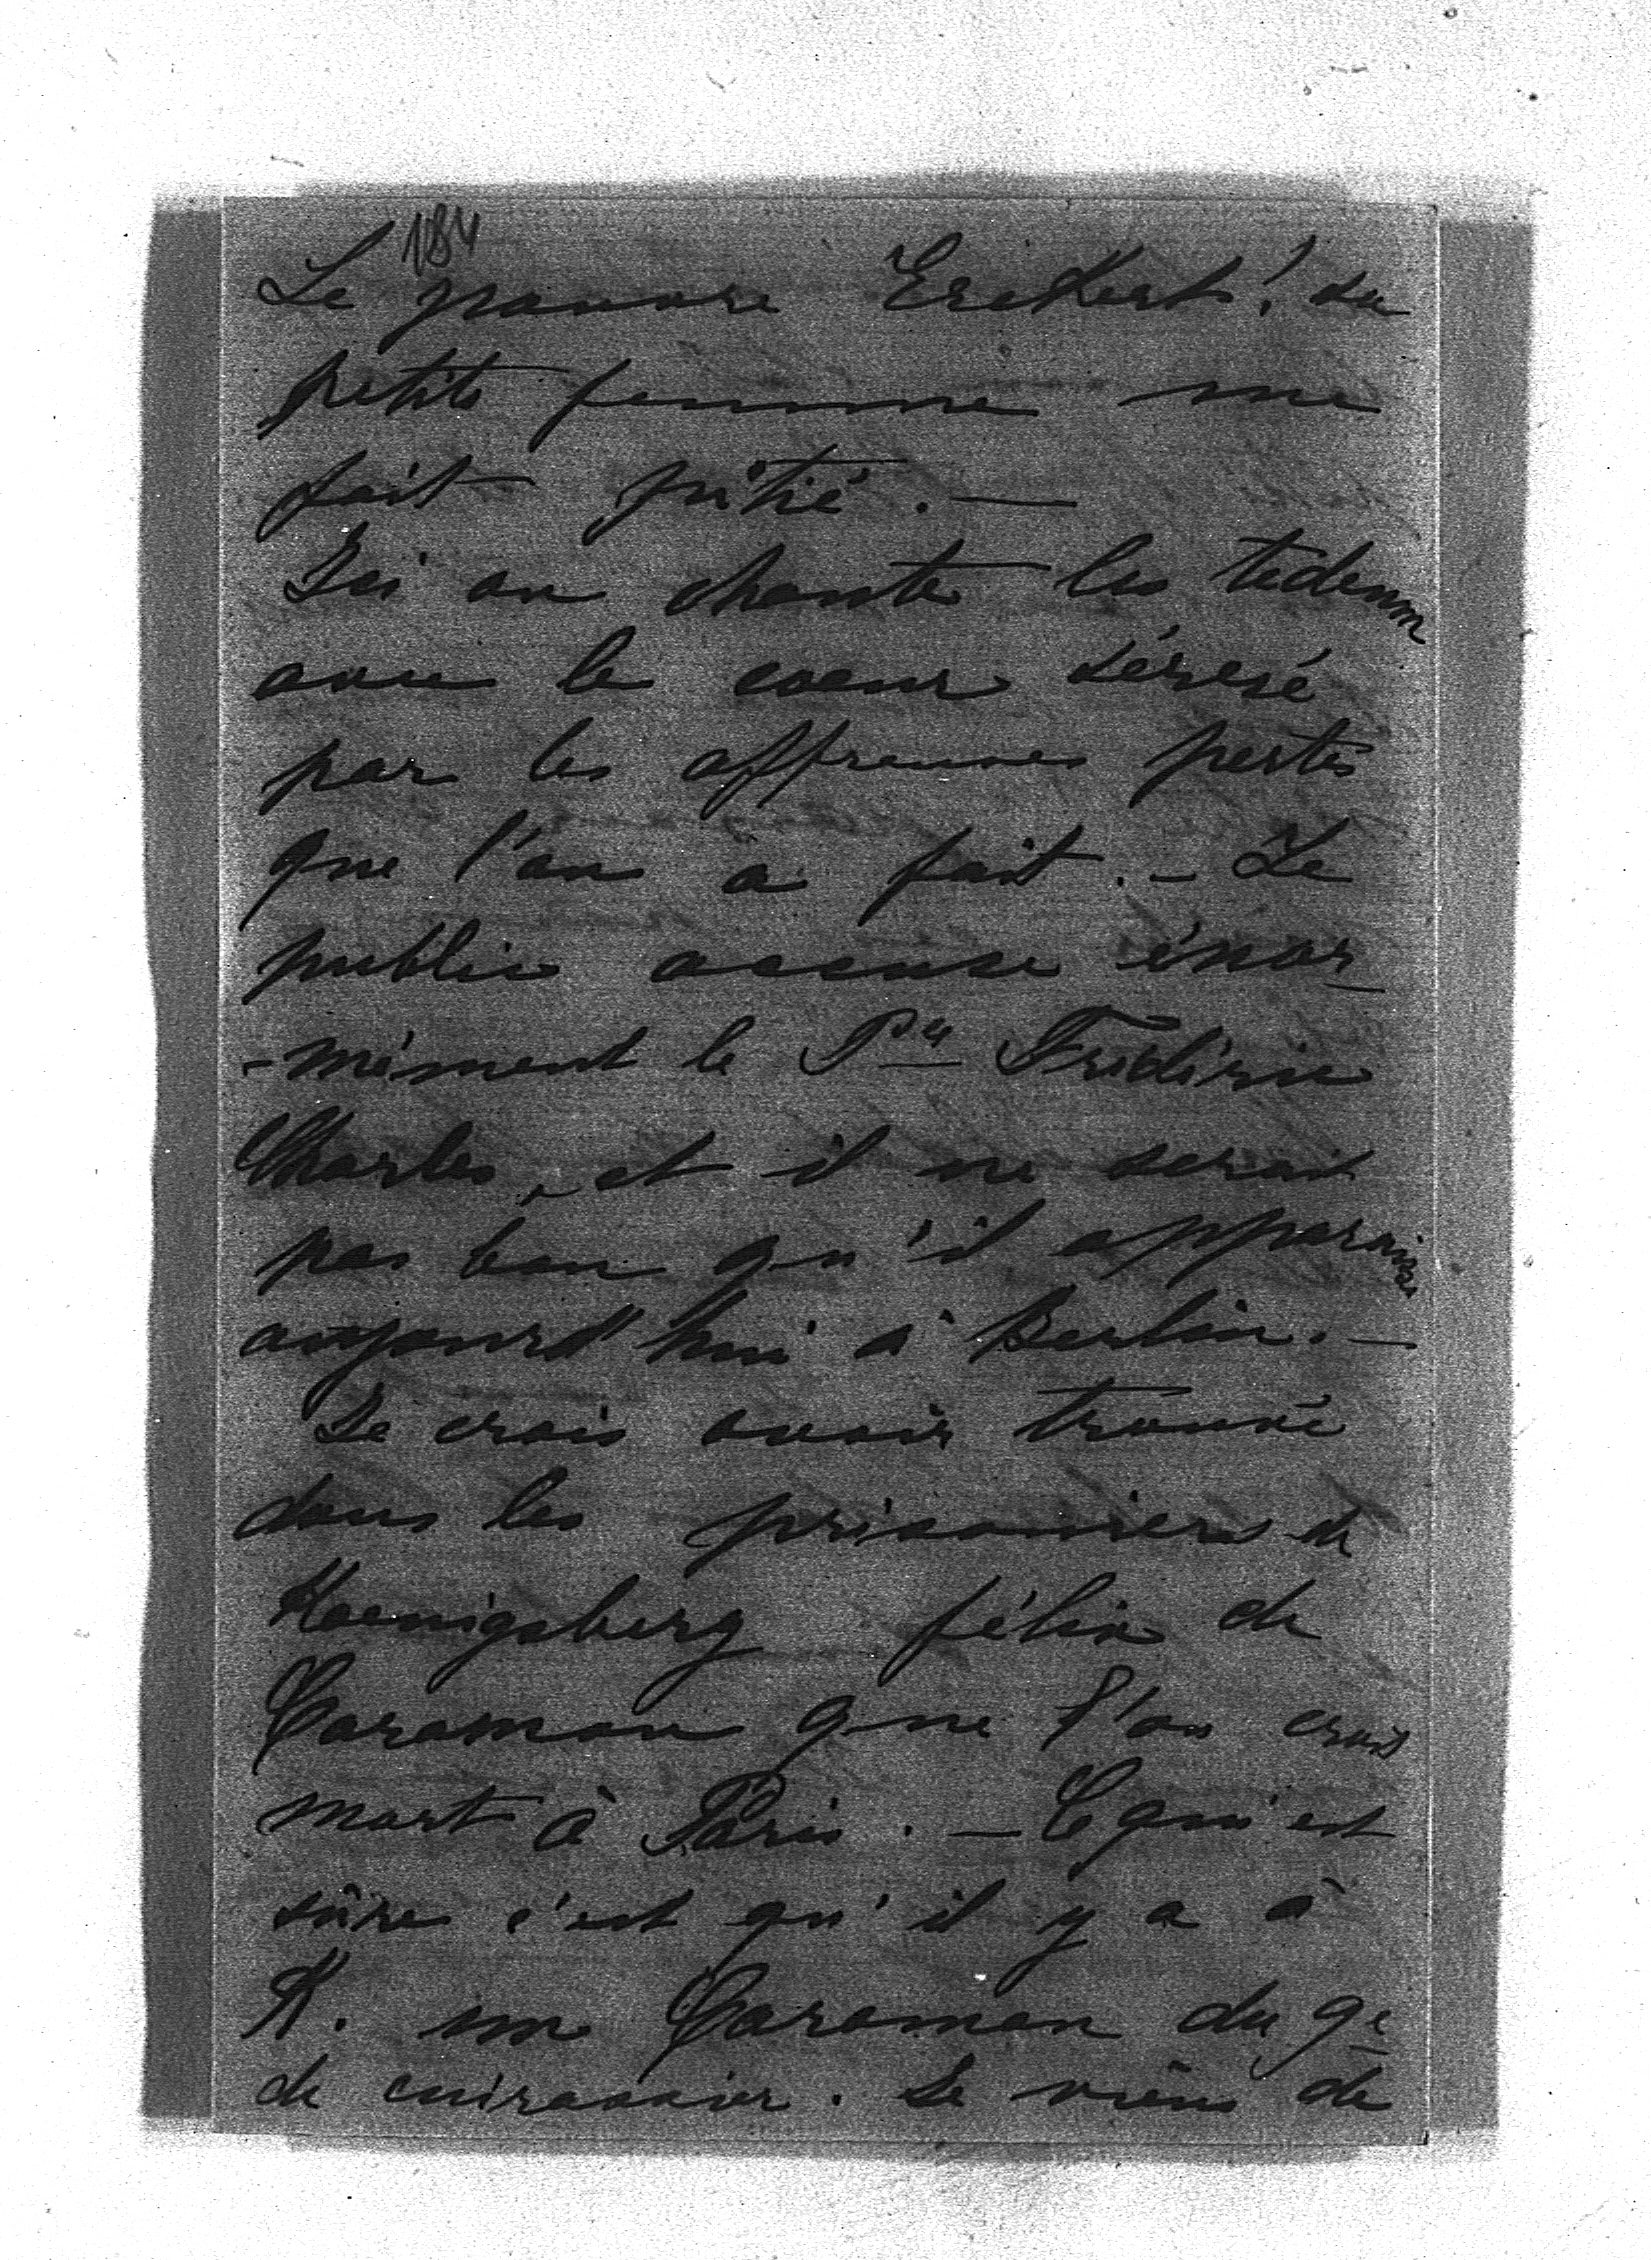 184
Le pauvre Erckert! sa
petite femme me
fait pitié. —
Ici on chante les tedeum
avec le coeur séresé
par les affreuses pertes
que l'on a fait. — Le
public accuse énor-
-mément le Pce Frédéric
Charles, et il ne serait
pas bon qu'il apparaisse
aujourd'hui à Berlin. —
Je crois avoir trouvé
dans les prisonniers de
Koenigsberg félix de
Caraman que l'on croit
mort à Paris. — C qui est
sûre c'est qu'il y a à
K. un Caraman du 9e
de cuirassier. Je viens de